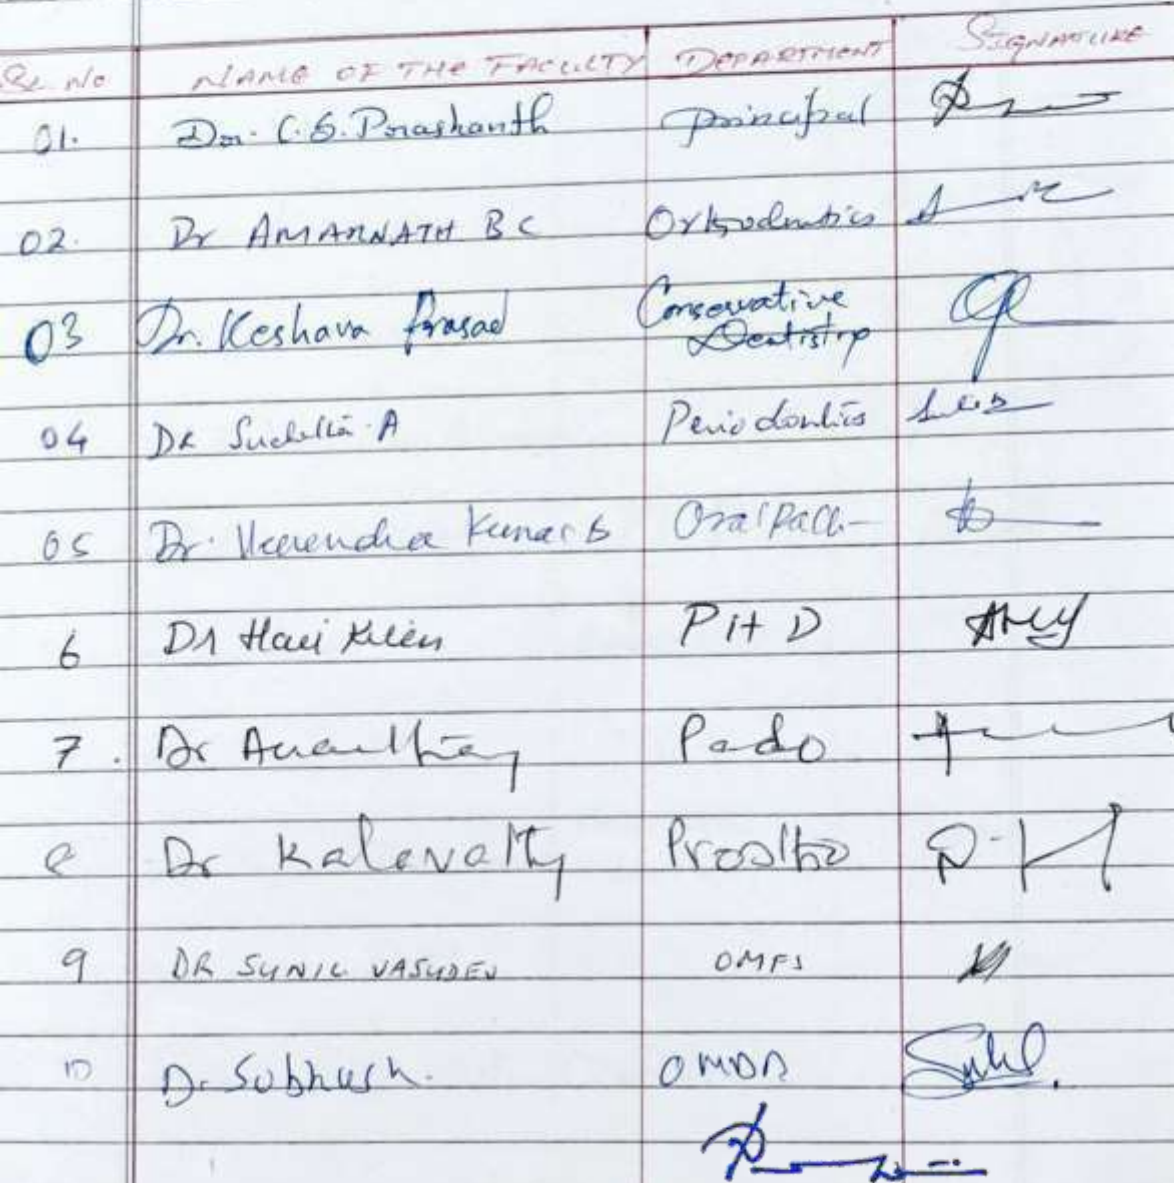 Sl. No NAME OF THE FACULTY DEPARTMENT SIGNATURE
01. Dr. C.S. Prashanth Principal
02. Dr AMARNATH B C Orthodontics
03 Dr. Keshava Prasad Conservative
Dentistry
04 Dr Suchetha A Periodontics
05 Dr. Veerendra Kumar B Oral Path
6 Dr Hari P H D
7. Dr Pedo
8 Dr Kalavathy Prostho
9 DR SUNIL VASUDEV OMFS
10 Dr Subhash. OMDR